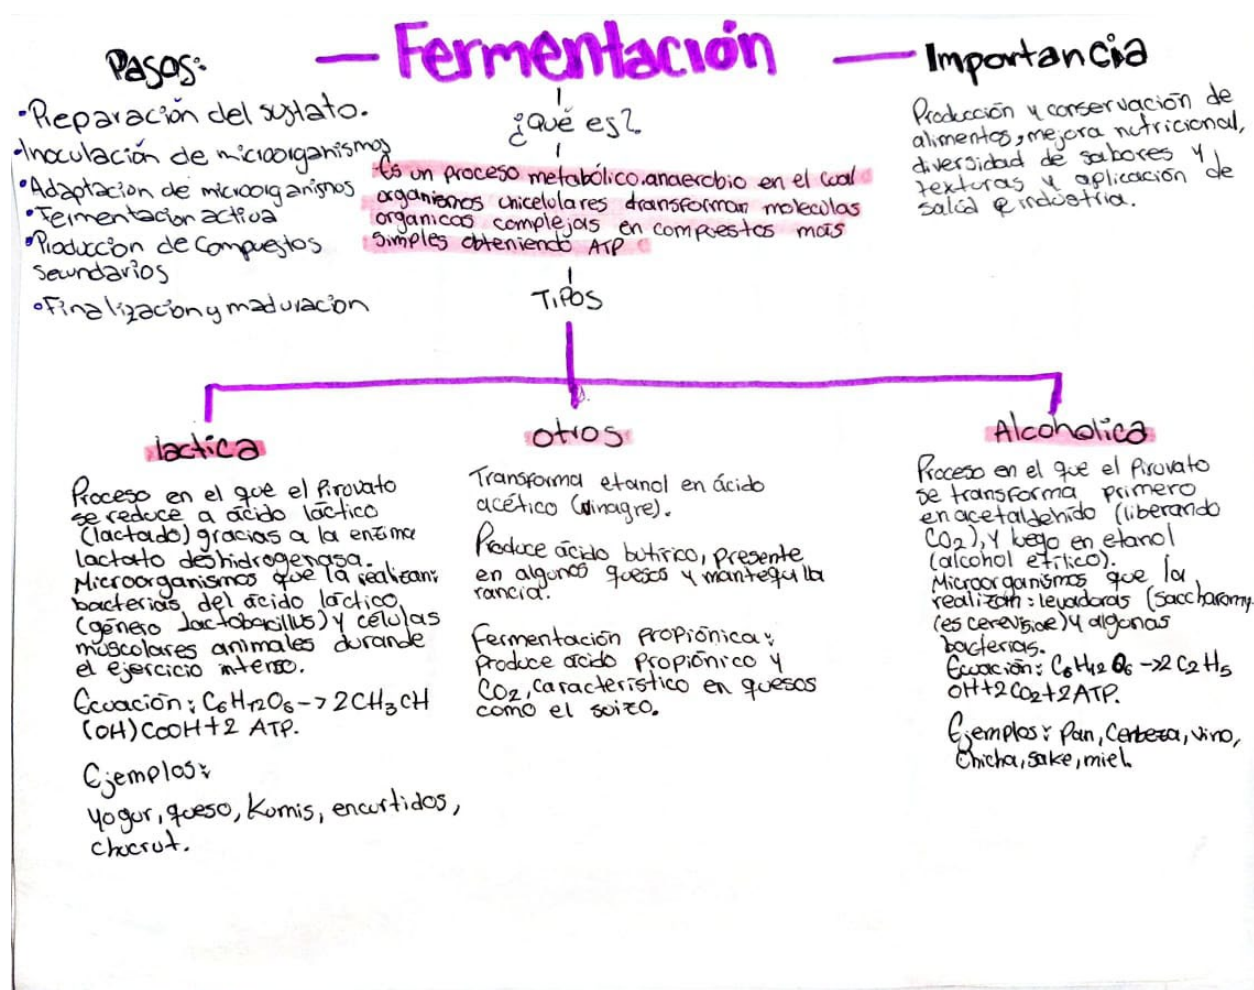 Fermentación
Pasos:
•Preparación del sustato.
•Inoculación de microorganismos
•Adaptación de microorganismos
•Fermentacion activa
•Producción de compuestos
secundarios
•Finalización y maduración
¿Qué es?
Es un proceso metabólico.anaerobio en el cual
organismos unicelulares transforman moleculas
organicas complejas en compuestos más
simples obteniendo ATP
Importancia
Producción y conservación de
alimentos, mejora nutricional,
diversidad de sabores y
texturas y aplicación de
salud e industria.
TIPOS
lactica
Proceso en el que el Pirovato
se reduce a ácido láctico
(lactado) gracias a la enzima
lactato deshidrogenasa.
Microorganismos que la realizan:
bacterias del ácido láctico
(género Lactobacillus) y células
musculares animales durande
el ejercicio intenso.
Ecuación: C6H12O6->2CH3CH
(OH)COOH+2 ATP.
Ejemplos:
yogur, queso, Kumis, encurtidos,
chucrut.
otros
Transforma etanol en ácido
acético (vinagre).
Produce ácido butírico, presente
en algunos quesos y mantequilla
rancia.
Fermentación Propiónica:
produce ácido Propiónico y
CO2, característico en quesos
como el suizo.
Alcoholica
Proceso en el que el Pirovato
se transforma primero
en acetaldehído (liberando
CO2), y luego en etanol
(alcohol etílico).
Microorganismos que la
realizan: levaduras (saccharomy-
(es cerevisiae) y algunas
bacterias.
Ecuación: C6H12O6->2C2H5
OH+2CO2+2ATP.
Ejemplos: Pan, Cerbeza, vino,
Chicha, sake, miel.